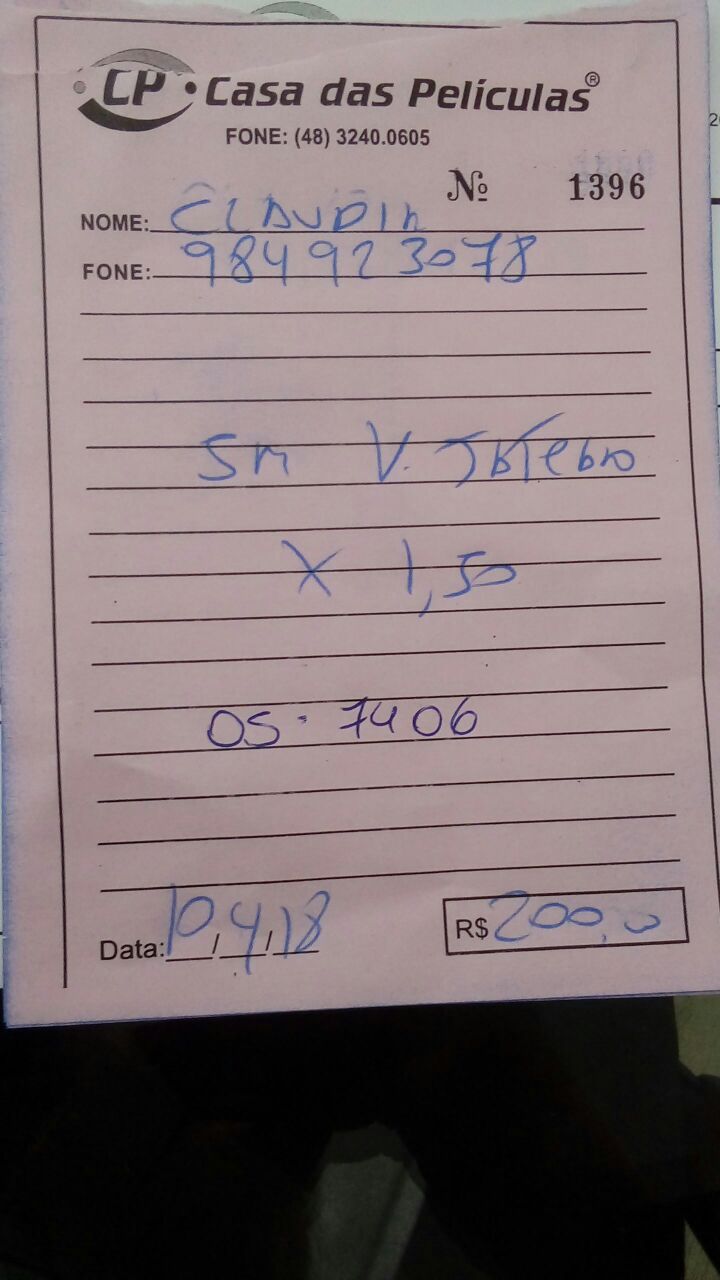 CP • Casa das Películas®
FONE: (48) 3240.0605
Nº 1396
NOME: CLAUDIA
FONE: 984923078
5m V. Jateado
X 1,50
OS. 7406
Data: 10/4/18
R$ 200,00